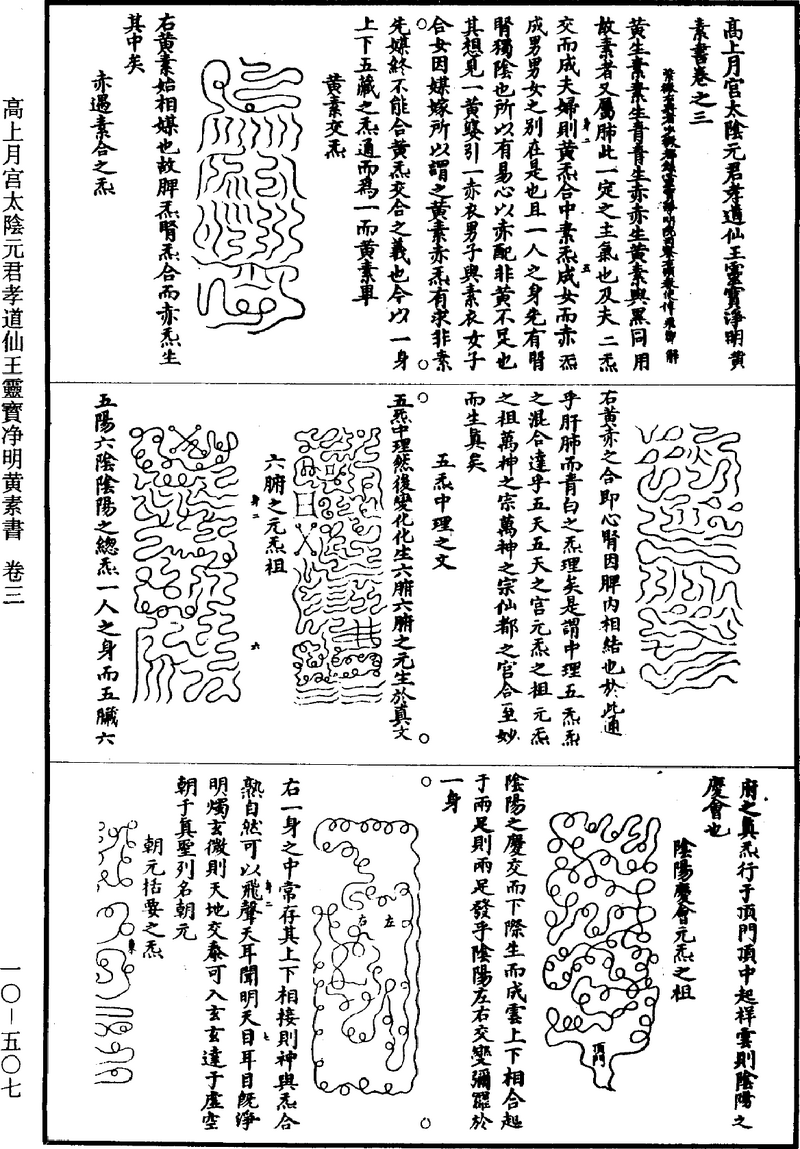 高上月宮太陰元君孝道仙王靈寶淨明黃
素書卷之三
黃生素素生青青生赤赤生黃素與黑同用
故素者又屬肺此一定之主氣也及夫二炁
交而成夫婦則黃炁合中素炁成女而赤炁
成男男女之別在是也且一人之身先有腎
腎獨陰也所以有易心以赤配非黃不足也
其想見一黃婆引一赤衣男子與素衣女子
合女因媒嫁所以謂之黃素赤炁有求非素
先媒終不能合黃炁交合之義也今以一身
上下五藏之炁通而爲一而黃素畢
黃素交炁
右黃素始相媒也故脾炁腎炁合而赤炁生
其中矣
赤遇素合之炁
右黃赤之合即心腎因脾內相結也於此通
乎肝肺而青白之炁理矣是謂中理五炁炁
之混合達乎五天五天之宮元炁之祖元炁
之祖萬神之宗萬神之宗仙都之官合至妙
而生真矣
五炁中理之文
五炁中理然後變化化生六腑六腑之元生於真文
六腑之元炁祖
五陽六陰陰陽之總炁一人之身而五臟六
府之真炁行于頂門頂中起祥雲則陰陽之
慶會也
陰陽慶會元炁之祖
頂門
陰陽之慶交而下際生而成雲上下相合起
于兩足則兩足發乎陰陽左右交變彌羅於
一身
左
右
右一身之中常存其上下相接則神與炁合
熟自然可以飛聲天耳聞明天目耳目旣淨
明燭玄微則天地交泰可入玄玄達于虛空
朝于真聖列名朝元
朝元括要之炁
高上月宮太陰元君孝道仙王靈寶淨明黃素書　卷三
一〇－五〇七